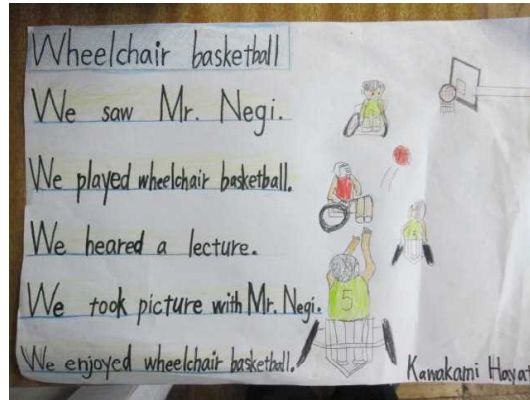 Wheelchair basketball
We saw Mr. Negi.
We played wheelchair basketball.
We heared a lecture.
We took picture with Mr. Negi.
We enjoyed wheelchair basketball.
5
5
Kawakami Hayat